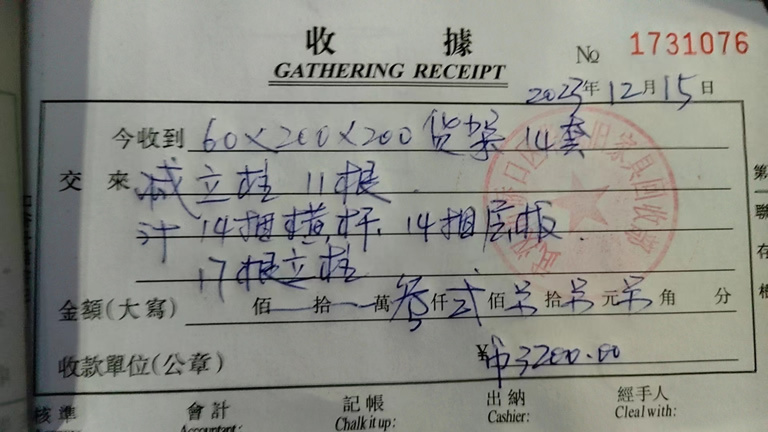 收 據
GATHERING RECEIPT
№ 1731076
2023年12月15日
今收到 60×200×200 货架 14套
交 來 减立柱 11根
计 14捆横杆. 14捆层板.
17根立柱
金額(大寫) 佰 拾 萬 叁仟 贰佰 零拾 零元 零角 分
收款單位(公章) ¥ 3200.00
核準 會計 記帳 出納 經手人
Accountant: Chalk it up: Cashier: Cleal with:
第
聯
存
根